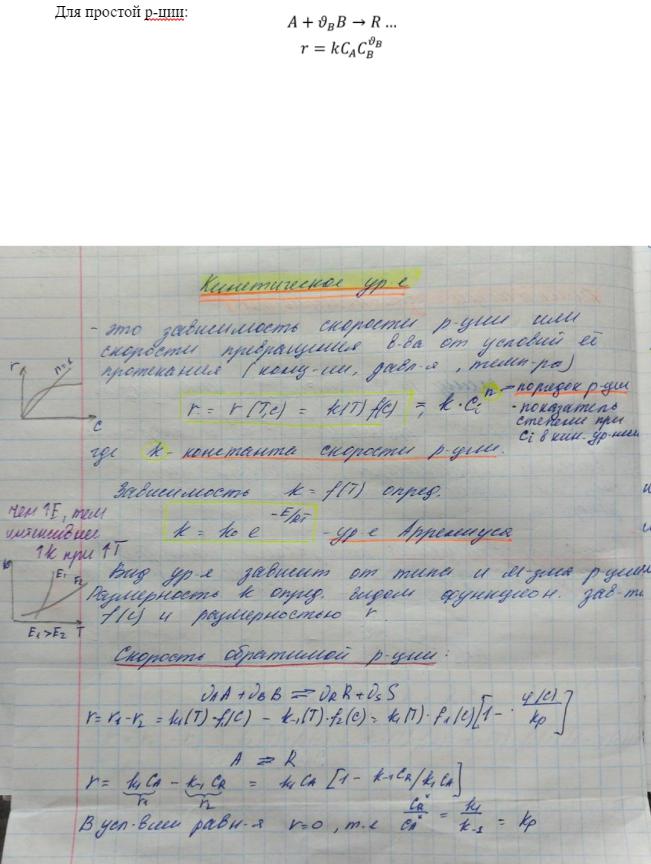 Для простой р-ции:
A + ϑ_B B → R ...
r = kC_A C_B^{ϑ_B}
Кинетическое ур-е
- это зависимость скорости р-ции или
скорости превращения в-ва от условий её
протекания (конц-ии, давл-я, темп-ра)
r
n=1
C
r = r(T,c) = k(T) f(C) = k·C_i^n - порядок р-ции
- показатель
степени при
Ci в кин. ур-нии
где k - константа скорости р-ции.
Зависимость k = f(T) опред.
чем ↑E, тем
интенсивнее
↑k при ↑T
k = k₀ e^{-E/RT} - ур-е Аррениуса
k
E₁
E₂
E₁>E₂ T
Вид ур-я зависит от типа и м-зма р-ции
Размерность k опред. видом функцион. зав-ти
f(c) и размерностью r
Скорость обратимой р-ции:
ϑ_A A + ϑ_B B ⇌ ϑ_R R + ϑ_S S
r = r₁ - r₂ = k₁(T)·f₁(C) - k₋₁(T)·f₂(C) = k₁(T)·f₁(C) [1 - φ(C)/Kp]
A ⇌ R
r = k₁C_A - k₋₁C_R = k₁C_A [1 - k₋₁C_R/k₁C_A]
r₁ r₂
В усл-виях равн-я r=0, т.е C_R*/C_A* = k₁/k₋₁ = Kp